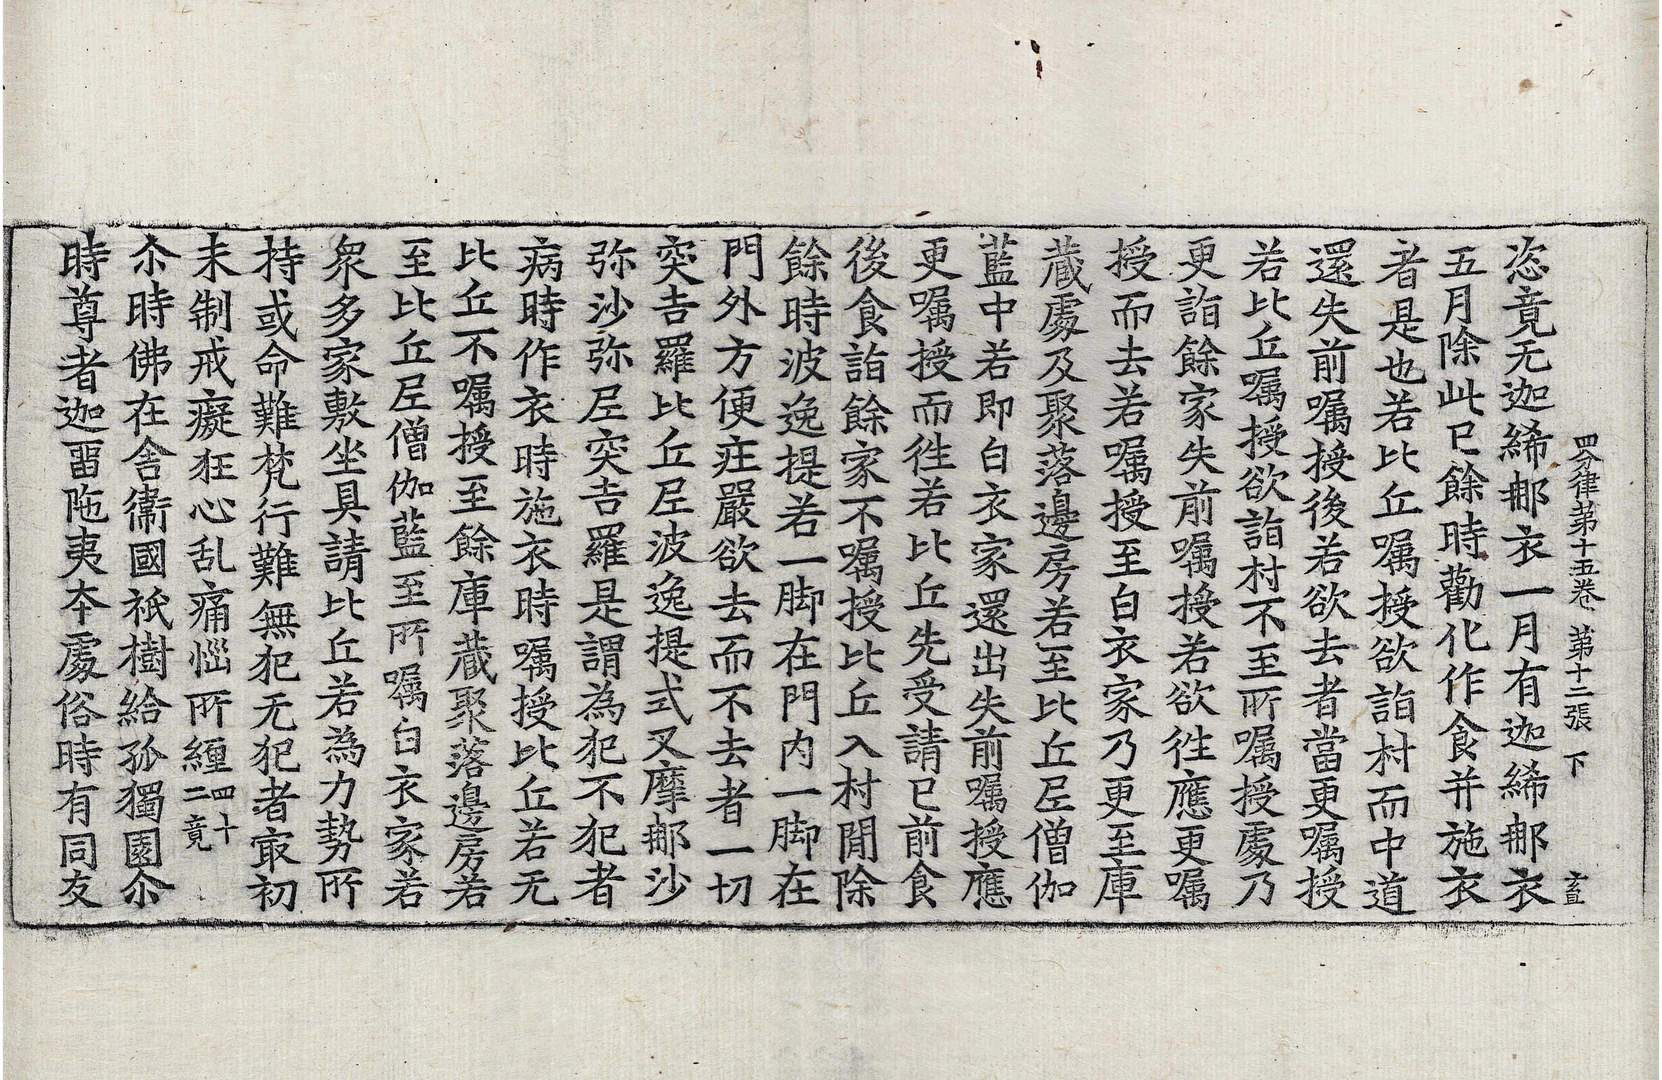 四分律第十五卷 第十二張 下
恣竟无迦絺那衣一月有迦絺那衣
五月除此已餘時勸化作食并施衣
者是也若比丘囑授欲詣村而中道
還失前囑授後若欲去者當更囑授
若比丘囑授欲詣村不至所囑授處乃
更詣餘家失前囑授若欲往應更囑
授而去若囑授至白衣家乃更至庫
藏處及聚落邊房若至比丘尼僧伽
藍中若即白衣家還出失前囑授應
更囑授而往若比丘先受請已前食
後食詣餘家不囑授比丘入村閒除
餘時波逸提若一脚在門內一脚在
門外方便莊嚴欲去而不去者一切
突吉羅比丘尼波逸提式叉摩那沙
弥沙弥尼突吉羅是謂為犯不犯者
病時作衣時施衣時囑授比丘若无
比丘不囑授至餘庫藏聚落邊房若
至比丘尼僧伽藍至所囑白衣家若
衆多家敷坐具請比丘若為力勢所
持或命難梵行難無犯无犯者冣初
未制戒癡狂心乱痛惱所纏四十二竟
尒時佛在舍衛國祇樹給孤獨園尒
時尊者迦畱陁夷本處俗時有同友